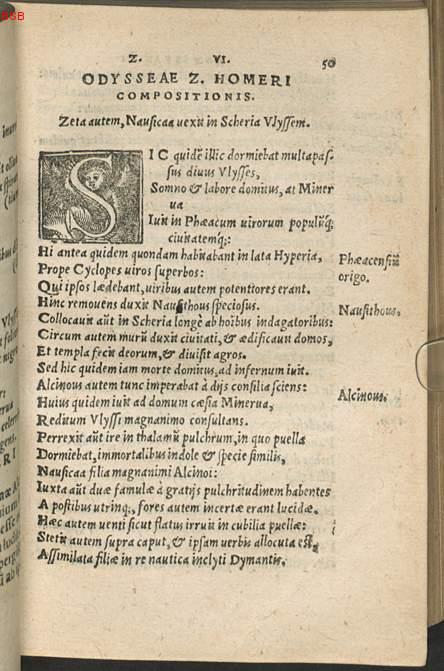 BSB
Z. VI. 50
ODYSSEAE Z. HOMERI
COMPOSITIONIS.
Zeta autem, Nausicaa uexit in Scheria Vlyssem.
SIC quidē illic dormiebat multa pas⸗
sus diuus Vlysses,
Somno & labore domitus, at Miner
ua
Iuit in Phæacum uirorum populūq;
ciuitatemq;:
Hi antea quidem quondam habitabant in lata Hyperia,
Phæacensiū
Prope Cyclopes uiros superbos:
origo.
Qui ipsos lædebant, uiribus autem potentiores erant.
Hinc remouens duxit Nausithous speciosus.
Nausithous.
Collocauit aūt in Scheria longè ab hoībus indagatoribus:
Circum autem murū duxit ciuitati, & ædificauit domos,
Et templa fecit deorum, & diuisit agros.
Sed hic quidem iam morte domitus, ad infernum iuit.
Alcinous autem tunc imperabat à dijs consilia sciens:
Alcinous.
Huius quidem iuit ad domum cæsia Minerua,
Reditum Vlyssi magnanimo consultans.
Perrexit aūt ire in thalamū pulchrum, in quo puella
Dormiebat, immortalibus indole & specie similis,
Nausicaa filia magnanimi Alcinoi:
Iuxta aūt duæ famulæ à gratijs pulchritudinem habentes
A postibus utrinq;, fores autem incertæ erant lucidæ.
Hæc autem uenti sicut flatus irruit in cubilia puellæ:
Stetit autem supra caput, & ipsam uerbis allocuta est,
Assimilata filiæ in re nautica inclyti Dymantis,